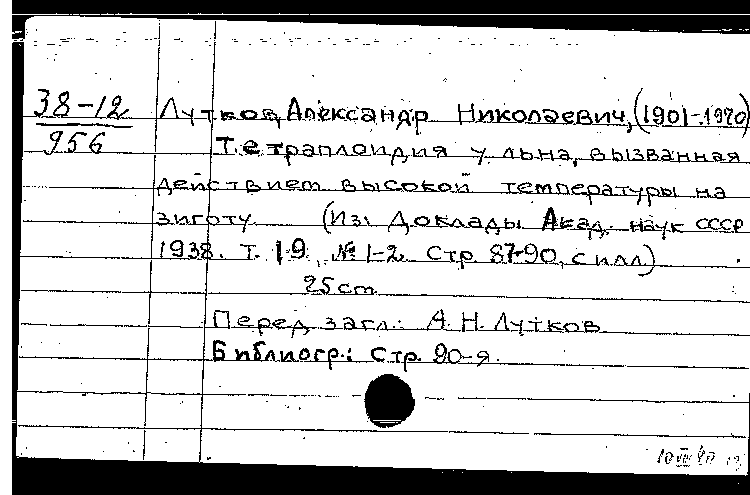 38-12
956
Лутков, Александр Николаевич, (1901-1970)
Тетраплоидия у льна, вызванная
действием высокой температуры на
зиготу. (Из: Доклады Акад. наук СССР
1938. Т. 19, № 1-2. Стр. 87-90, с илл.)
25 cm.
Перед загл.: А. Н. Лутков.
Библиогр.: стр. 90-я.